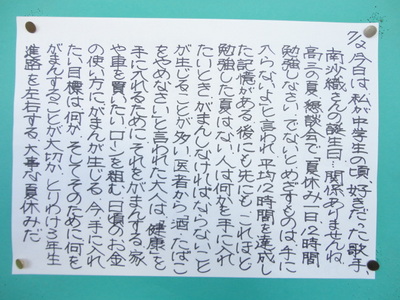 7/2今日は、私が中学生の頃、好きだった歌手、
南沙織さんの誕生日…関係ありませんね。
高三の夏、懇談会で「夏休み一日12時間
勉強しなさい。でないとめざすものは、手に
入らないよ」と言われ、平均12時間を達成し
た記憶がある。後にも先にも、これほど
勉強した夏はない。人は何かを手に入れ
たいときがまんしなければならないこと
が生じることが多い。医者から「酒・たばこ
をやめなさい」と言われた大人は「健康」を
手に入れるためにそれをがまんする。家
や車を買いたい、ローンを組む、日頃のお金
の使い方にがまんが生じる。今、手に入れ
たい目標は何か、そしてそのために何を
がまんすることが大切か、とりわけ3年生
進路を左右する大事な夏休みだ